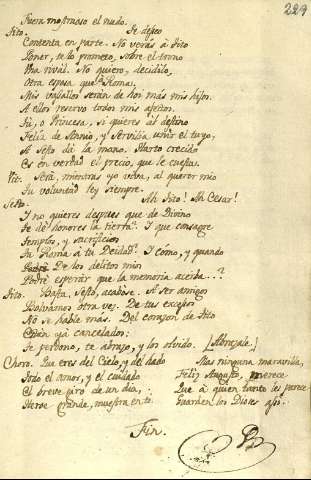 229
Fuera monstruoso el nudo.
Tito. Te dexo
Contenta en parte. No verás á Tito
Poner, te lo prometo, sobre el trono
Una rival. No quiero, decidilo,
Otra esposa que Roma.
Mis vasallos serán de hoi más mis hijos.
A ellos reservo todos mis afectos.
Tú, ó Princesa, si quieres al destino
Feliz de Annio, y Servilia unir el tuyo,
A Sesto dá la mano. Harto crecido
Es en verdad el precio, que le cuesta.
Vit. Será, mientras yo viva, al querer mio
Tu voluntad ley siempre.
Sesto. Ah Tito! Ah Cesar!
I no quieres despues que de Divino
Te dé honores la tierra? I que consagre
Templos, y sacrificios
Tu Roma á tu Deidad? I cómo, y quando
De los delitos mios
Podré esperar que la memoria acerba...?
Tito. Basta, Sesto, acabóse. A ser amigos
Bolvamos otra vez. De tus excesos
No se hable más. Del corazon de Tito
Están yá cancelados:
Te perdono, te abrazo, y los olvido. (Abrázale.)
Choro. Que eres del Cielo, y del Hado
Todo el amor, y el cuidado
El breve giro de un dia,
Heroe Grande, muestra en tí.
Mas ninguna maravilla,
Feliz Augusto, merece
Que á quien tanto les parece
Guarden los Dioses assi.
Fin.